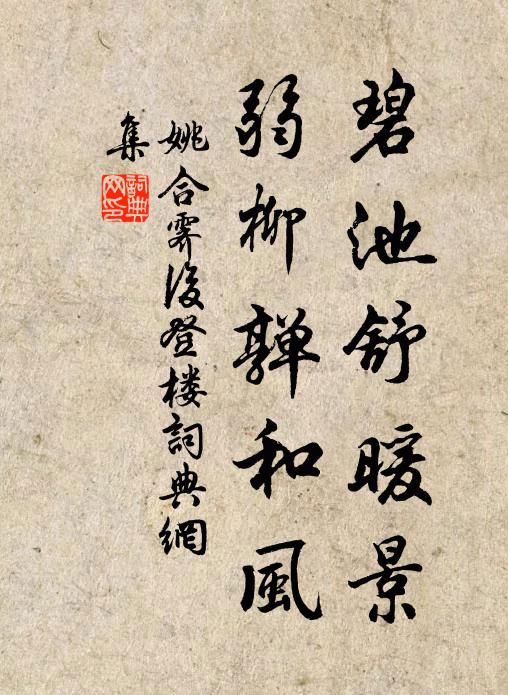 碧池舒暖景
弱柳亸和風
姚合霽後登樓詞典網
集
詞典网印